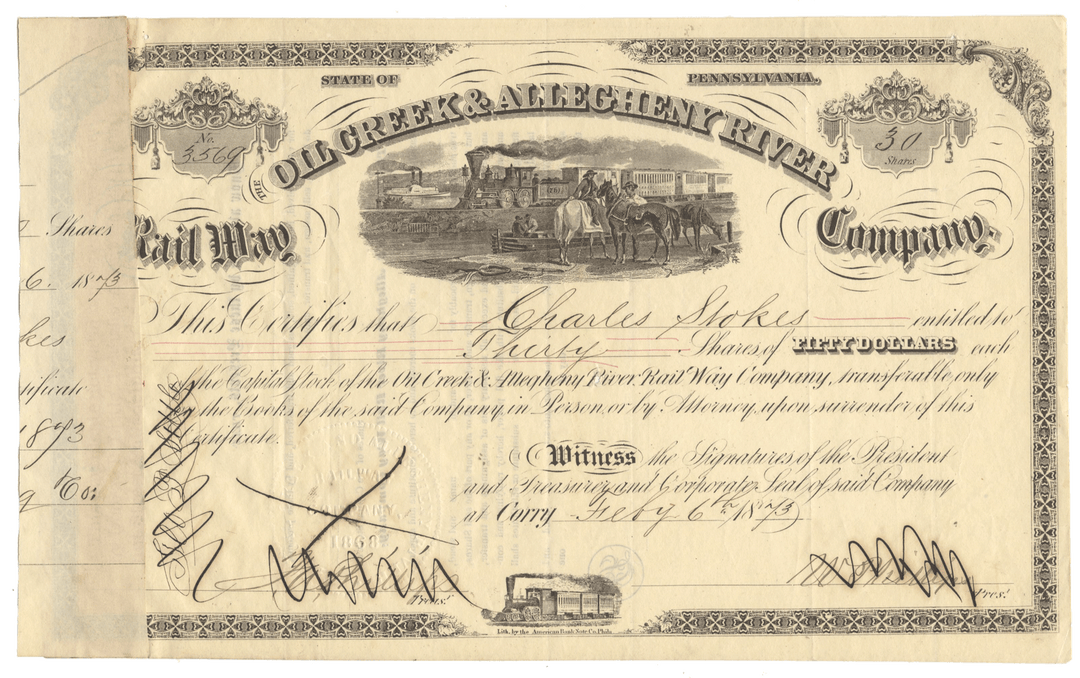 STATE OF PENNSYLVANIA.
No. 3569
30 Shares
THE OIL CREEK & ALLEGHENY RIVER
Rail Way Company.
Shares
6. 1873
kes
tificate
1873
Co:
This Certifies that Charles Stokes entitled to
Thirty Shares of FIFTY DOLLARS each
of the Capital Stock of the Oil Creek & Allegheny River Rail Way Company, transferable only
on the Books of the said Company, in Person or by Attorney, upon surrender of this
Certificate.
Witness the Signatures of the President
and Treasurer and Corporate Seal of said Company
at Corry Feby 6th 1873
1868
Treasr.
Prest.
Lith. by the American Bank Note Co. Phila.